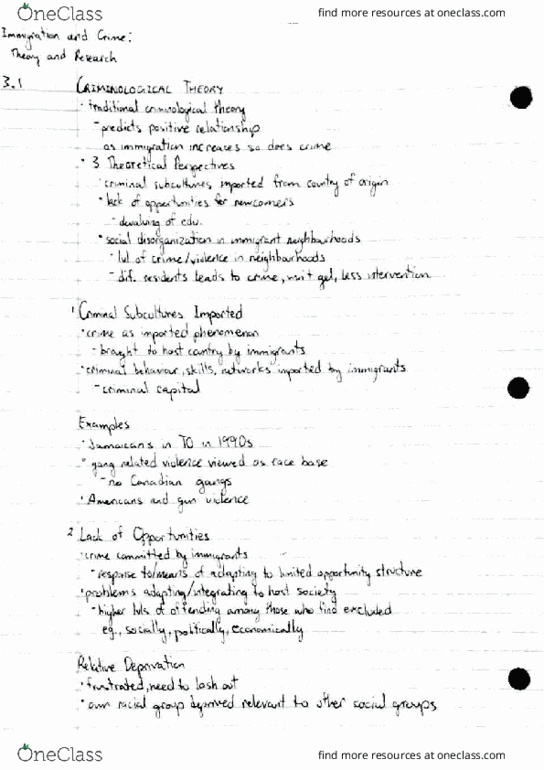 OneClass
find more resources at oneclass.com
Immigration and Crime:
Theory and Research
3.1 CRIMINOLOGICAL THEORY
• traditional criminological theory
- predicts positive relationship
as immigration increases so does crime
• 3 Theoretical Perspectives
• criminal subcultures imported from country of origin
• lack of opportunities for newcomers
- devaluing of edu.
• social disorganization in immigrant neighbourhoods
- lvl of crime/violence in neighbourhoods
- dif. residents leads to crime, won't gel, less intervention
1 Criminal Subcultures Imported
• crime as imported phenomenon
- brought to host country by immigrants
• criminal behaviour, skills, networks imported by immigrants
- criminal capital
Examples
• Jamaicans in TO in 1990s
• gang related violence viewed as race base
- no Canadian gangs
• Americans and gun violence
2 Lack of Opportunities
• crime committed by immigrants
- response to/means of adapting to limited opportunity structure
• problems adapting/integrating to host society
- higher lvls of offending among those who find excluded
eg., socially, politically, economically
Relative Deprivation
• frustrated, need to lash out
• own racial group deprived relevant to other social groups
OneClass
find more resources at oneclass.com